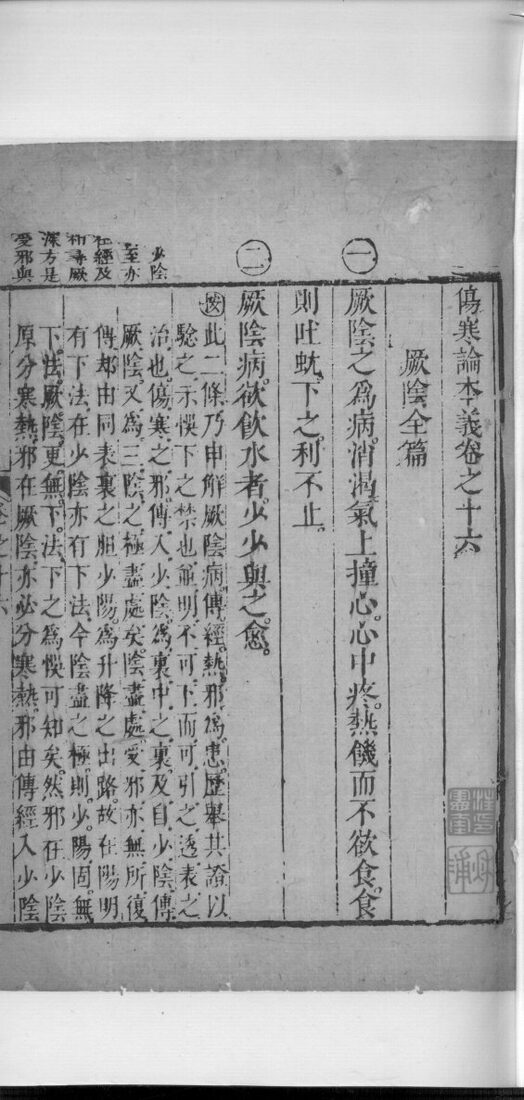 傷寒論本義卷之十六
厥陰全篇
一
厥陰之為病消渴氣上撞心心中疼熱饑而不欲食食
則吐蚘下之利不止
二
厥陰病欲飲水者少少與之愈
按此二條乃申解厥陰病傳經熱邪為患歷舉其證以
驗之示悞下之禁也並明不可下而可引之透表之
治也傷寒之邪傳入少陰為裏中之裏及自少陰傳
厥陰又為三陰之極盡處矣陰盡處受邪亦無所復
傳却由同表裏之胆少陽為升降之出路故在陽明
有下法在少陰亦有下法今陰盡之極則少陽固無
下法厥陰更無下法下之為悞可知矣然邪在少陰
原分寒熱邪在厥陰亦必分寒熱邪由傳經入少陰
少陰
至亦
在經及
相尋厥
深方是
受邪與
卷之十六